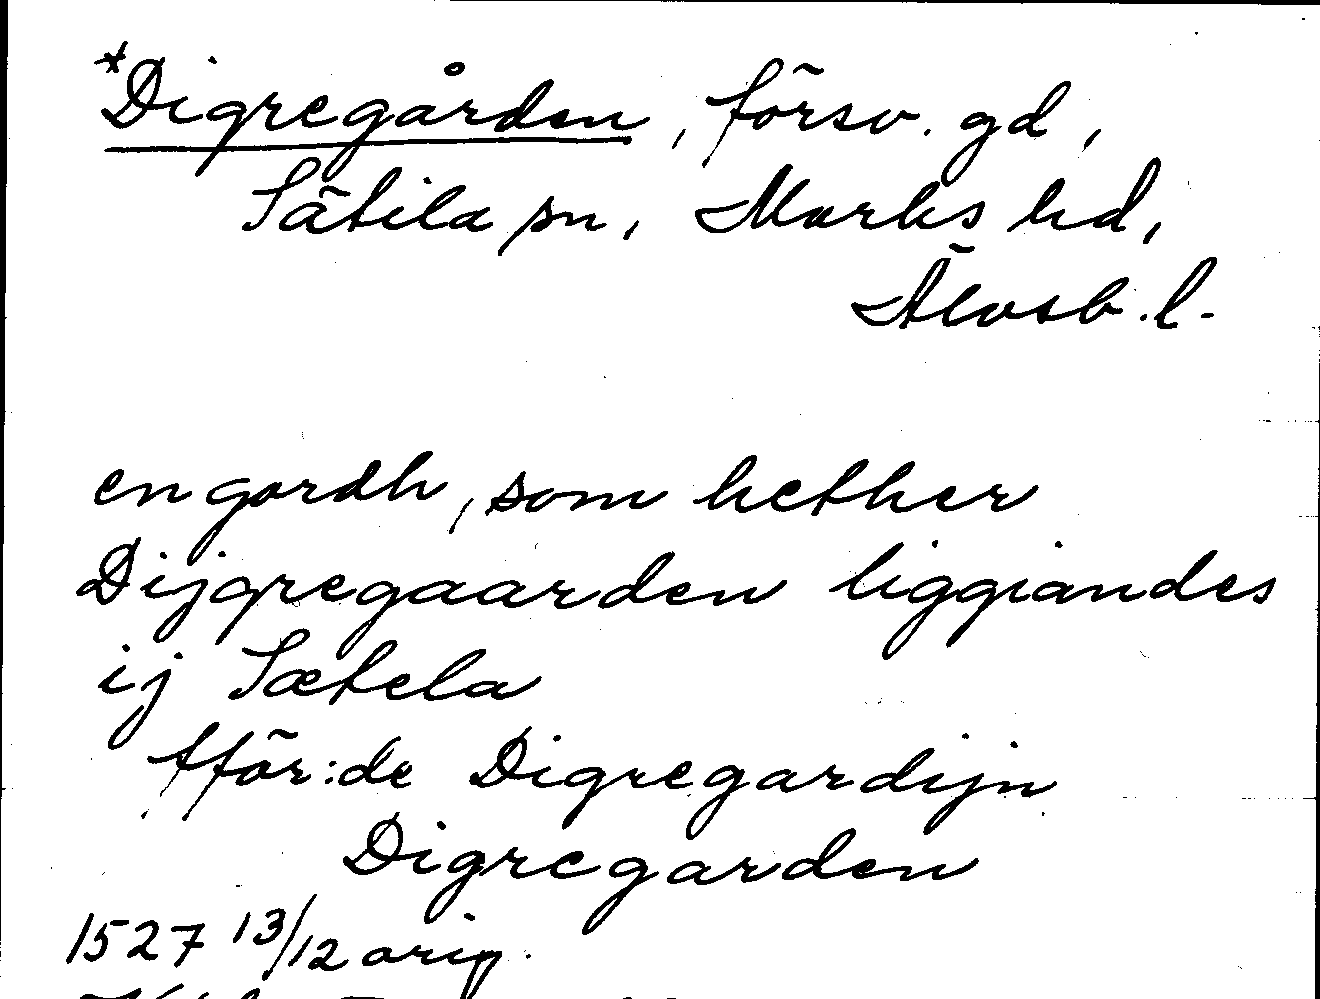 *Digregården, försv. gd,
Sätila sn, Marks hd,
Älvsb. l.
en gordh, som hether
Dijgregaarden liggiandes
ij Sætela
fför:de Digregardijn
Digregarden
1527 13/12 orig.